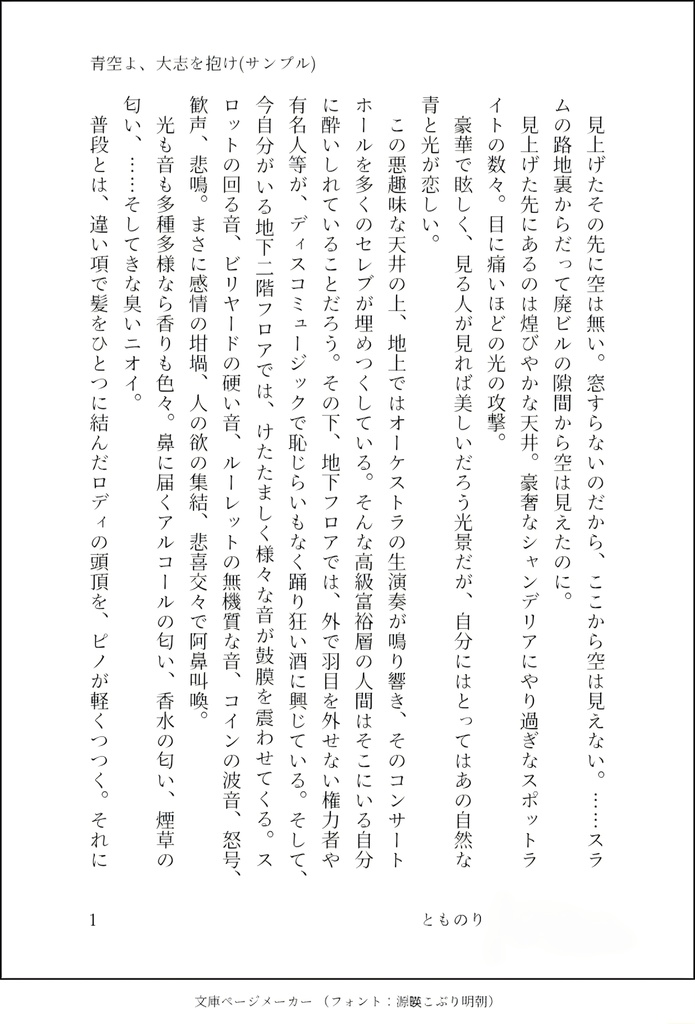 青空よ、大志を抱け(サンプル)
　見上げたその先に空は無い。窓すらないのだから、ここから空は見えない。……スラ
ムの路地裏からだって廃ビルの隙間から空は見えたのに。
　見上げた先にあるのは煌びやかな天井。豪奢なシャンデリアにやり過ぎなスポットラ
イトの数々。目に痛いほどの光の攻撃。
　豪華で眩しく、見る人が見れば美しいだろう光景だが、自分にはとってはあの自然な
青と光が恋しい。
　この悪趣味な天井の上、地上ではオーケストラの生演奏が鳴り響き、そのコンサート
ホールを多くのセレブが埋めつくしている。そんな高級富裕層の人間はそこにいる自分
に酔いしれていることだろう。その下、地下フロアでは、外で羽目を外せない権力者や
有名人等が、ディスコミュージックで恥じらいもなく踊り狂い酒に興じている。そして、
今自分がいる地下二階フロアでは、けたたましく様々な音が鼓膜を震わせてくる。ス
ロットの回る音、ビリヤードの硬い音、ルーレットの無機質な音、コインの波音、怒号、
歓声、悲鳴。まさに感情の坩堝、人の欲の集結、悲喜交々で阿鼻叫喚。
　光も音も多種多様なら香りも色々。鼻に届くアルコールの匂い、香水の匂い、煙草の
匂い、……そしてきな臭いニオイ。
　普段とは、違い項で髪をひとつに結んだロディの頭頂を、ピノが軽くつつく。それに
とものり
1
文庫ページメーカー（フォント：源暎こぶり明朝）